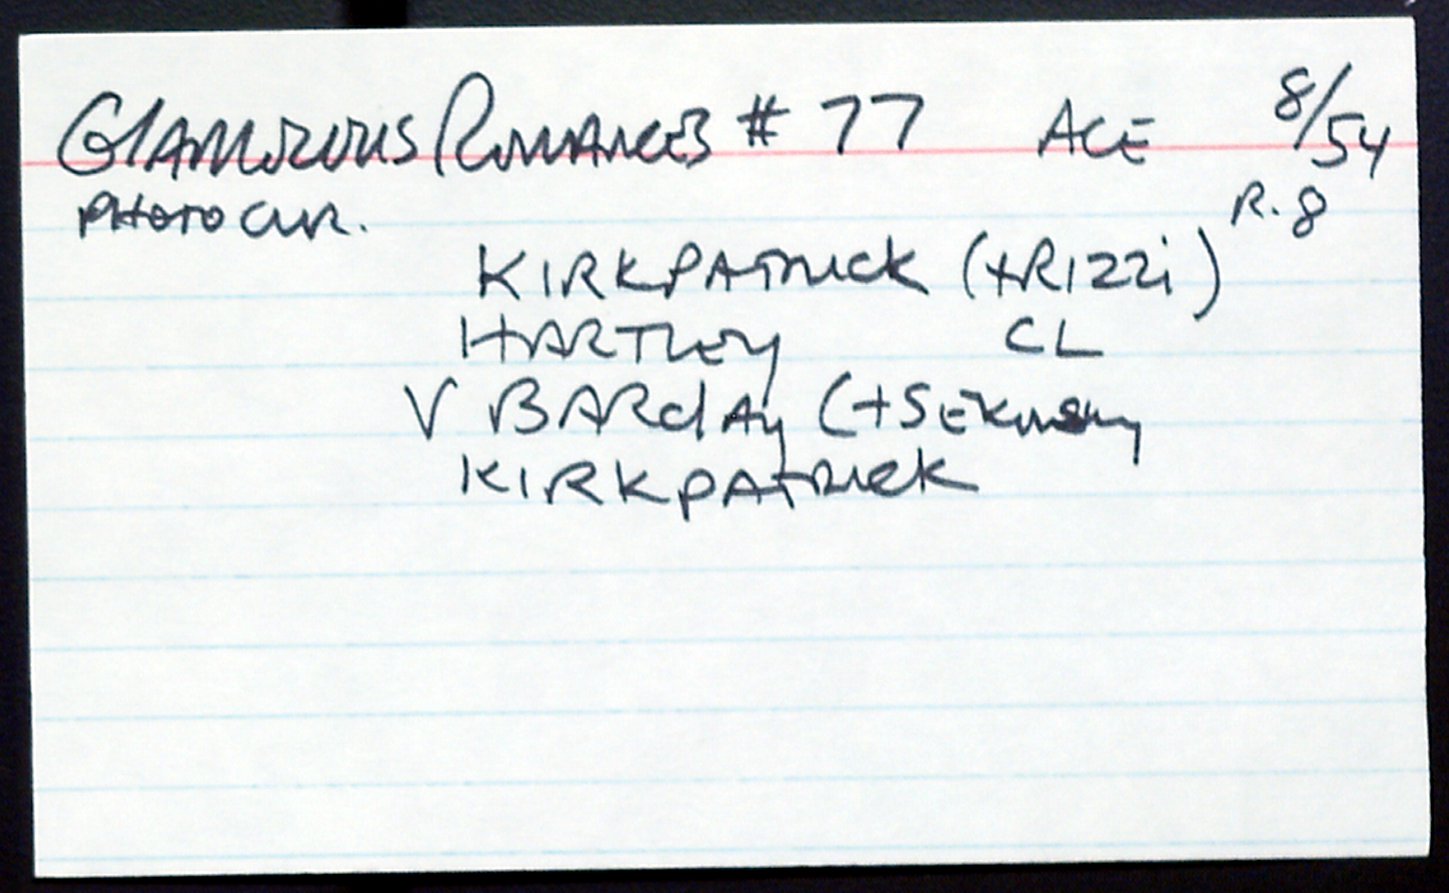 Glamorous Romances # 77 ACE 8/54
Photo CVR. R. 8
KIRKPATRICK (+RIZZi)
HARTLEY CL
V BARclAy (+SEKOWSKy
KIRKPATRICK